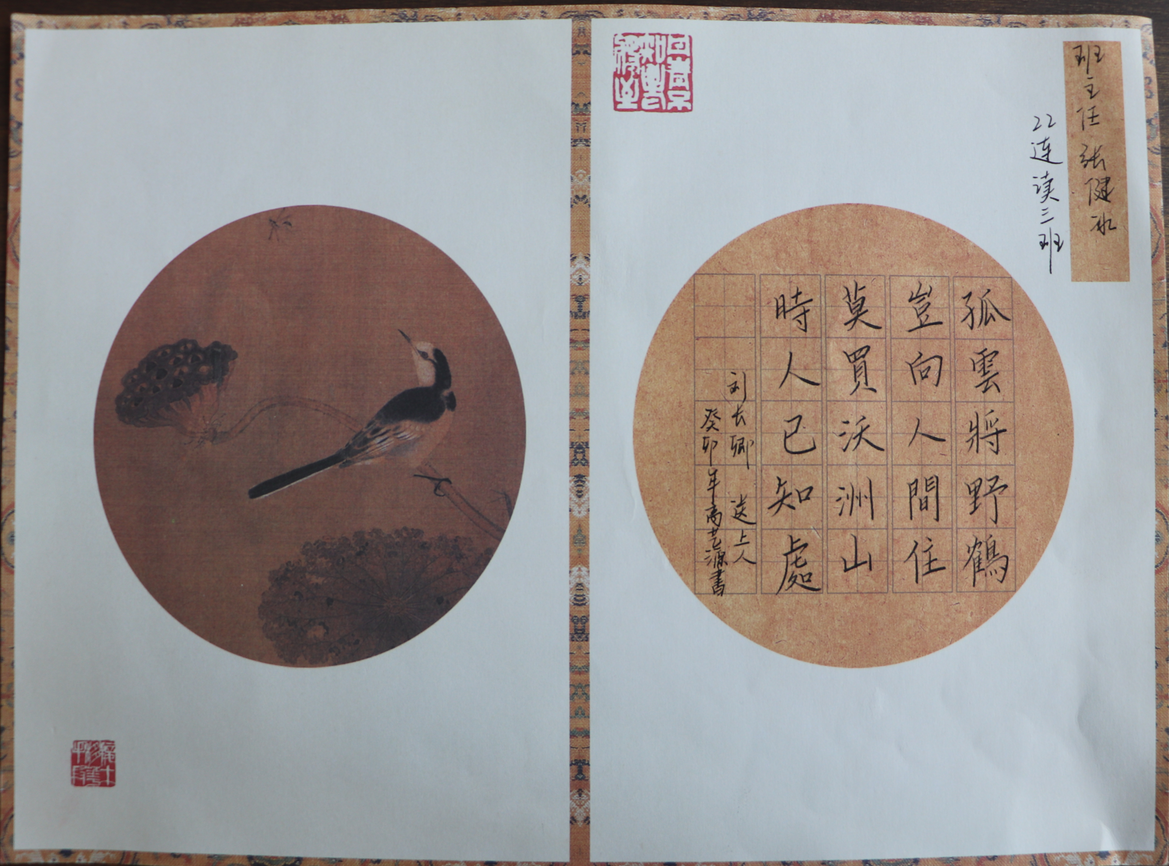 班主任 张健冰
22连读三班
孤雲將野鶴
豈向人間住
莫買沃洲山
時人已知處
刘长卿 送上人
癸卯年高艺源書